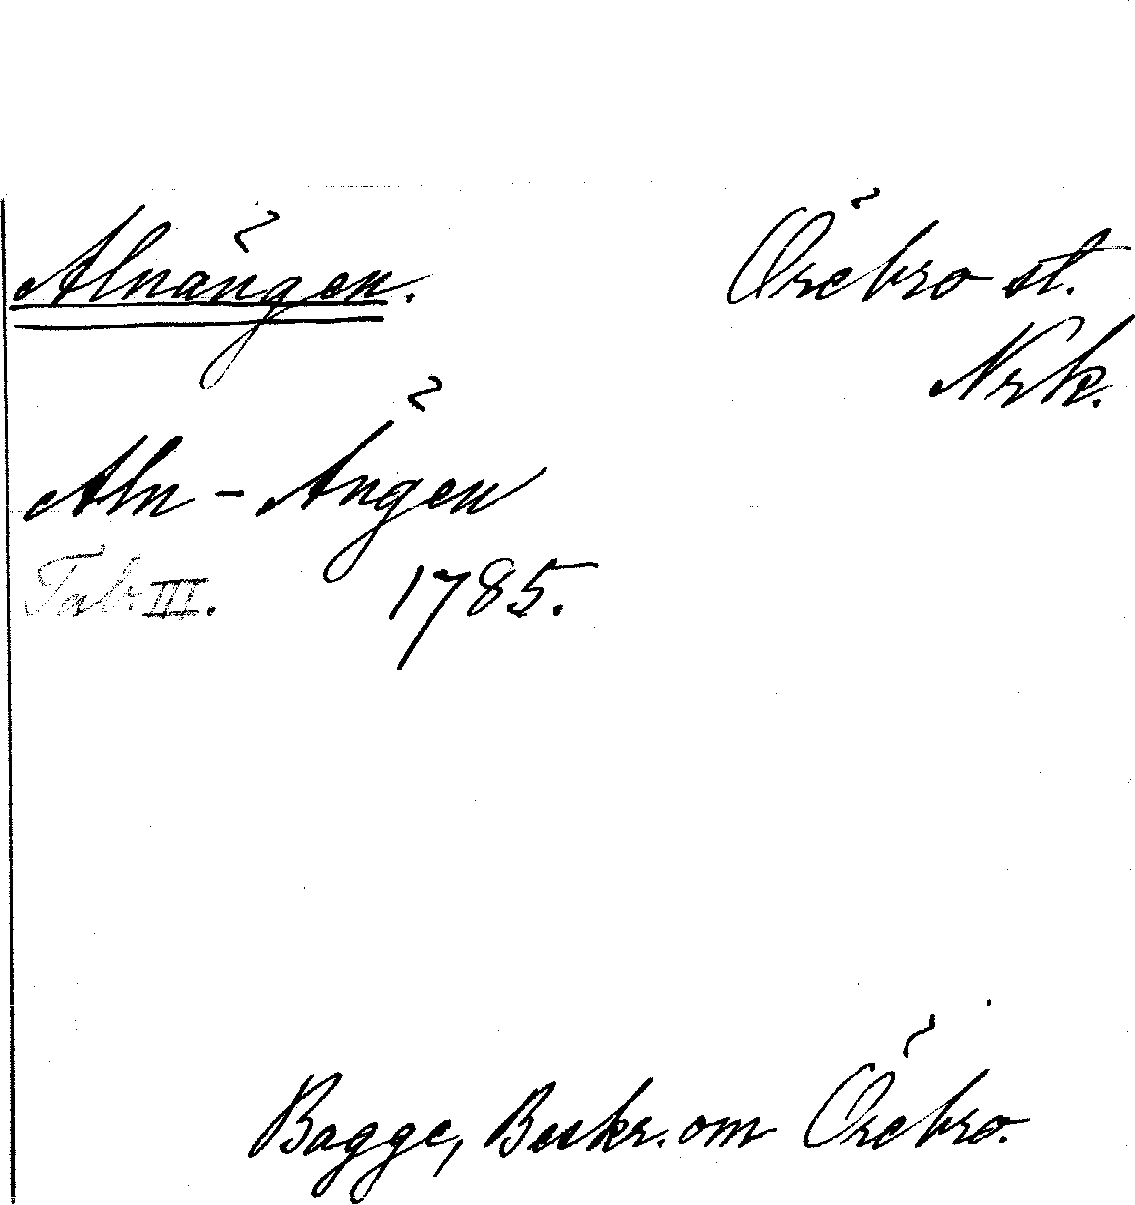 Alnängen. Örebro st.
Nrk.
Aln - Ängen
Tab. III. 1785.
Bagge, Beskr. om Örebro.